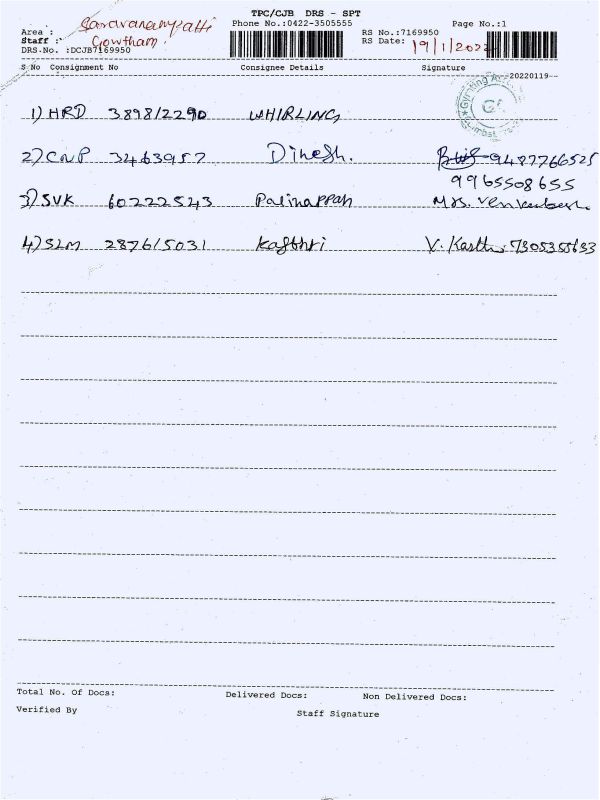 TPC/CJB DRS - SPT
Area : Saravanampatti Phone No.:0422-3505555 RS No.:7169950 Page No.:1
Staff : Gowtham. RS Date: 19/1/2022
DRS-No. :DCJB7169950
S No Consignment No Consignee Details Signature
20220119
1) HRD 3898/2290 WHIRLING
2) CNP 3463957 Dinesh. 9487766525
9965508655
3) SVK 60222543 Palinappan Mrs. Venkatesh
4) SLM 2876/5031 V. Karthi 7305355633
Total No. Of Docs: Delivered Docs: Non Delivered Docs:
Verified By Staff Signature